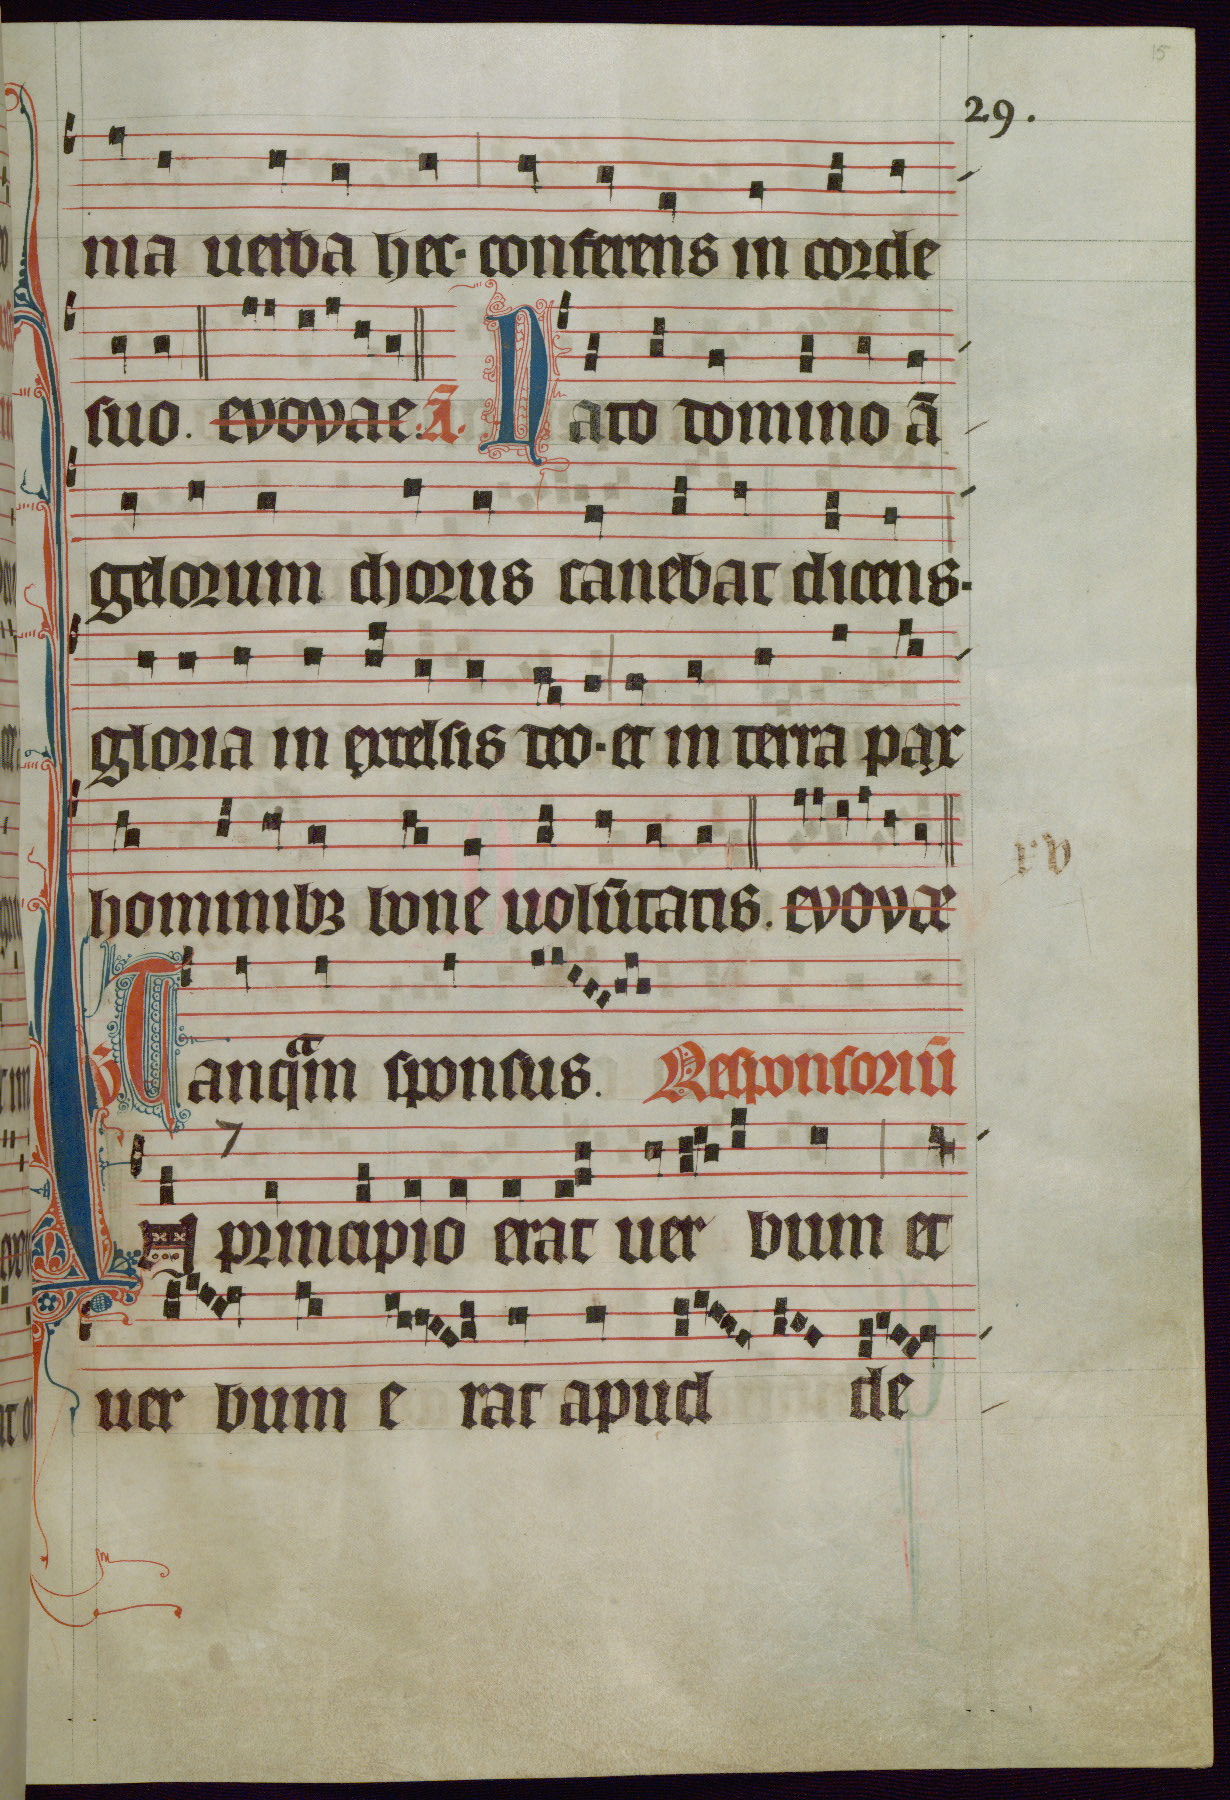 15
29.
nia uerba hec· conferens in corde
suo. evovae. A̅. Nato domino a̅
gelorum chorus canebat dicens·
gloria in excelsis deo· et in terra pax
hominibꝫ bone uolu̅tatis. evovae
xv
V̅ Tanqᵃm sponsus. Responsoriu̅
7
In principio erat uer bum et
uer bum e rat apud de